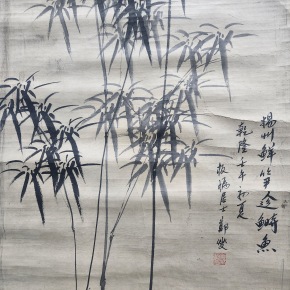 揚州鮮筍趁鰣魚
乾隆壬午初夏
板橋居士鄭燮